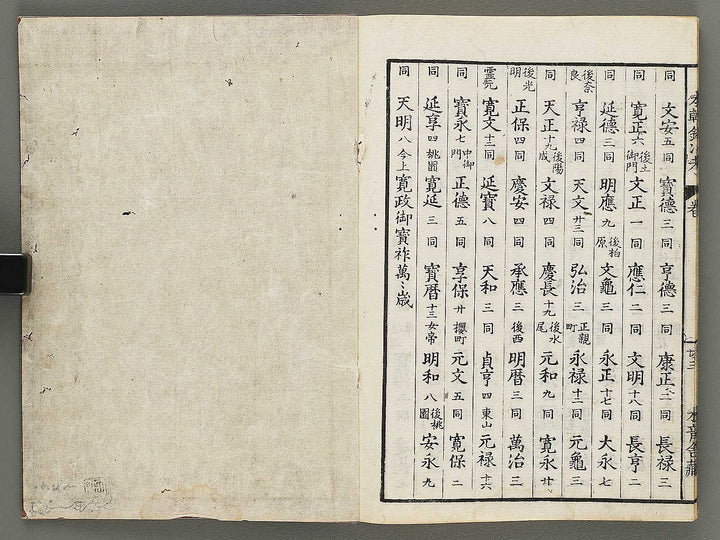 同 文安 五 同 寳德 三 同 亨德 三 同 康正 二 同 長禄 三
同 寛正 六 後土御門 文正 一 同 應仁 二 同 文明 十八 同 長亨 二
同 延德 三 同 明應 九 後柏原 文龜 三 同 永正 十七 同 大永 七
後奈良 亨禄 四 同 天文 廿三 同 弘治 三 正親町 永禄 十二 同 元龜 三
同 天正 十九 後陽成 文禄 四 同 慶長 十九 後水尾 元和 九 同 寛永 廿
後光明 正保 四 同 慶安 四 同 承應 三 後西 明暦 三 同 萬治 三
靈元 寛文 十二 同 延寳 八 同 天和 三 同 貞亨 四 東山 元禄 十六
同 寳永 七 中御門 正德 五 同 享保 廿 櫻町 元文 五 同 寛保 二
同 延享 四 桃園 寛延 三 同 寳暦 十三 女帝 明和 八 後桃園 安永 九
同 天明 八 今上 寛政御寳祚萬〻歳